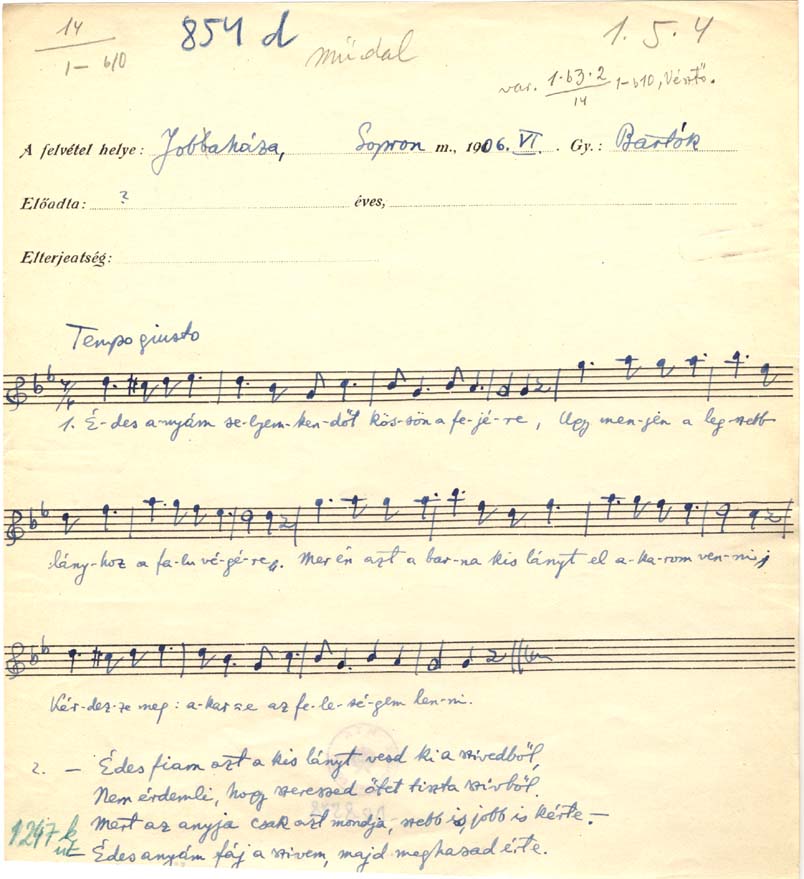 14
1 – b10
854 d
műdal
1. 5. 4
var. 1•b3•2
14
1–b10, Vésztő.
A felvétel helye: Jobbaháza, Sopron m., 1906. VI. Gy.: Bartók
Előadta: ? éves,
Elterjeatség:
Tempo giusto
1. É-des a-nyám se-lyem-ken-dőt kös-sön a fe-jé-re, Ugy men-jén a leg-szebb
lány-hoz a fa-lu vé-gé-re. Mer én azt a bar-na kis lányt el a-ka-rom ven-ni,
Kér-dez-ze meg: a-kar-e az fe-le-sé-gem len-ni.
2. – Édes fiam azt a kis lányt vesd ki a szivedből,
Nem érdemli, hogy szeressed őtet tiszta szivből.
Mert az anyja csak azt mondja, szebb is, jobb is kérte. –
– Édes anyám fáj a szivem, majd meghasad érte.
1247 k